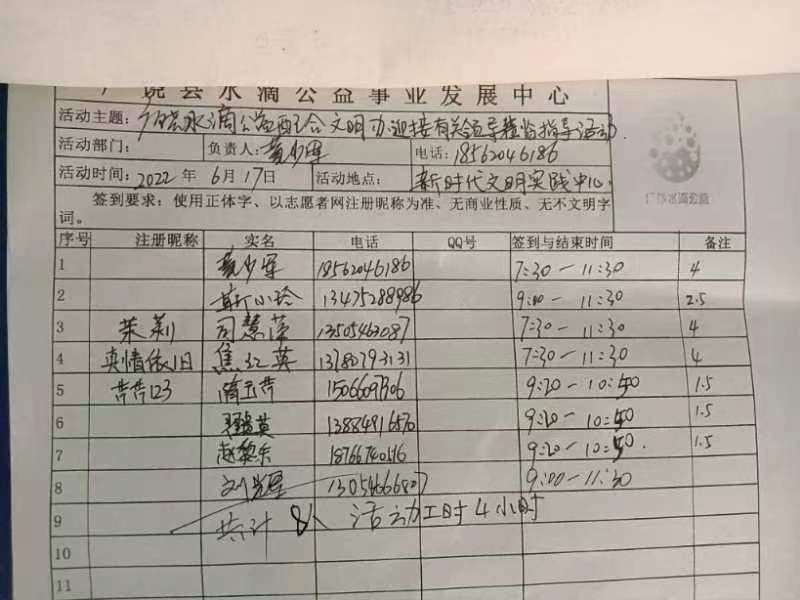 广饶县水滴公益事业发展中心
活动主题：广饶水滴公益配合文明办迎接有关领导莅临指导活动
活动部门： 负责人：黄少军 电话：18562046186
活动时间：2022年6月17日 活动地点：新时代文明实践中心
签到要求：使用正体字、以志愿者网注册昵称为准、无商业性质、无不文明字
词。
广饶水滴公益
序号 注册昵称 实名 电话 QQ号 签到与结束时间 备注
1 黄少军 18562046186 7:30-11:30 4
2 靳小玲 13475288986 9:00-11:30 2.5
3 茉莉 司慧萍 13505463087 7:30-11:30 4
4 爽情依旧 焦红英 7:30-11:30 4
5 芾芾123 9:20-10:50 1.5
6 9:20-10:50 1.5
7 赵黎东 9:20-10:50. 1.5
8 刘光星 9:00-11:30
9 共计 8人 活动工时4小时
10
11